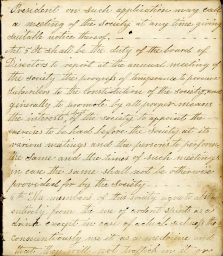 President on such application may call
a meeting of the society at any time giving
suitable notice thereof.
Art 5 It shall be the duty of the board of
Directors to report at the annual meeting of
the society the progress of temperance to procure
subscribers to the Constitution of the society, and
generally to promote by all proper means
the interests of the society to appoint the
exercises to be had before the Society at its
various meetings and the persons to perform
the same and the times of such meetings
in case the same shall not be otherwise
provided for by the society.
The members of this society agree to abstain
entirely from the use of ardent spirit as a
drink except in case of
conscientiously use it as a medicine and
that they will not traffic in it